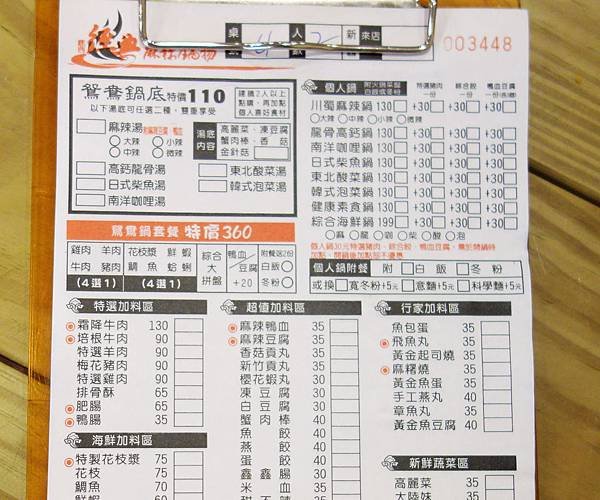 經典
麻辣鍋物
桌 4 人 2 新 來店
003448
鴛鴦鍋底 特價110
以下湯底可任選二種，雙重享受
建議2人以上
點購，再加點
個人喜好食材
麻辣湯
大辣 小辣
中辣 微辣
湯底內容
高麗菜、凍豆腐
蟹肉棒、香菇
金針菇
高鈣龍骨湯 東北酸菜湯
日式柴魚湯 韓式泡菜湯
南洋咖哩湯
鴛鴦鍋套餐 特價360
雞肉 羊肉
牛肉 豬肉
(4選1)
花枝漿 鮮蝦
鯛魚 蛤蜊
(4選1)
綜合大拼盤
鴨血/豆腐+20
附餐送2份
白飯
冬粉
個人鍋
附火鍋菜盤
特選豬肉一份 綜合餃一份 鴨血豆腐一份
川蜀麻辣鍋 130 +30 +30 +30
大辣 中辣 小辣 微辣
龍骨高鈣鍋 130 +30 +30 +30
南洋咖哩鍋 130 +30 +30 +30
日式柴魚鍋 130 +30 +30 +30
東北酸菜鍋 130 +30 +30 +30
韓式泡菜鍋 130 +30 +30 +30
健康素食鍋 130 +30 +30 +30
綜合海鮮鍋 199 +30 +30 +30
麻 龍 咖 柴 酸 泡
個人鍋附餐 附 白飯 冬粉
或換 寬冬粉+5元 意麵+5元 科學麵+5元
特選加料區
霜降牛肉 130
培根牛肉 90
特選羊肉 90
梅花豬肉 90
特選雞肉 90
排骨酥 65
肥腸 65
鴨腸 35
海鮮加料區
特製花枝漿 75
花枝 75
鯛魚 70
鮮蝦
超值加料區
麻辣鴨血 35
麻辣豆腐 35
香菇貢丸 35
新竹貢丸 35
櫻花蝦丸 35
凍豆腐 30
白豆腐 30
蟹肉棒 40
魚餃 30
燕餃 30
蛋餃 30
鑫鑫腸 30
米血 30
甜不辣
行家加料區
魚包蛋 35
飛魚丸 35
黃金起司燒 35
麻糬燒 35
黃金魚蛋 35
手工燕丸 40
章魚丸 40
黃金魚豆腐 40
新鮮蔬菜區
高麗菜 35
大陸妹